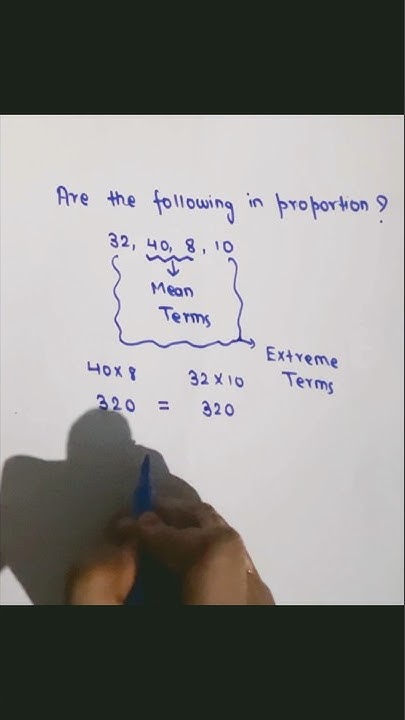 Are the following in proportion?
32, 40, 8, 10
Mean
Terms
Extreme
Terms
40×8 32×10
320 = 320